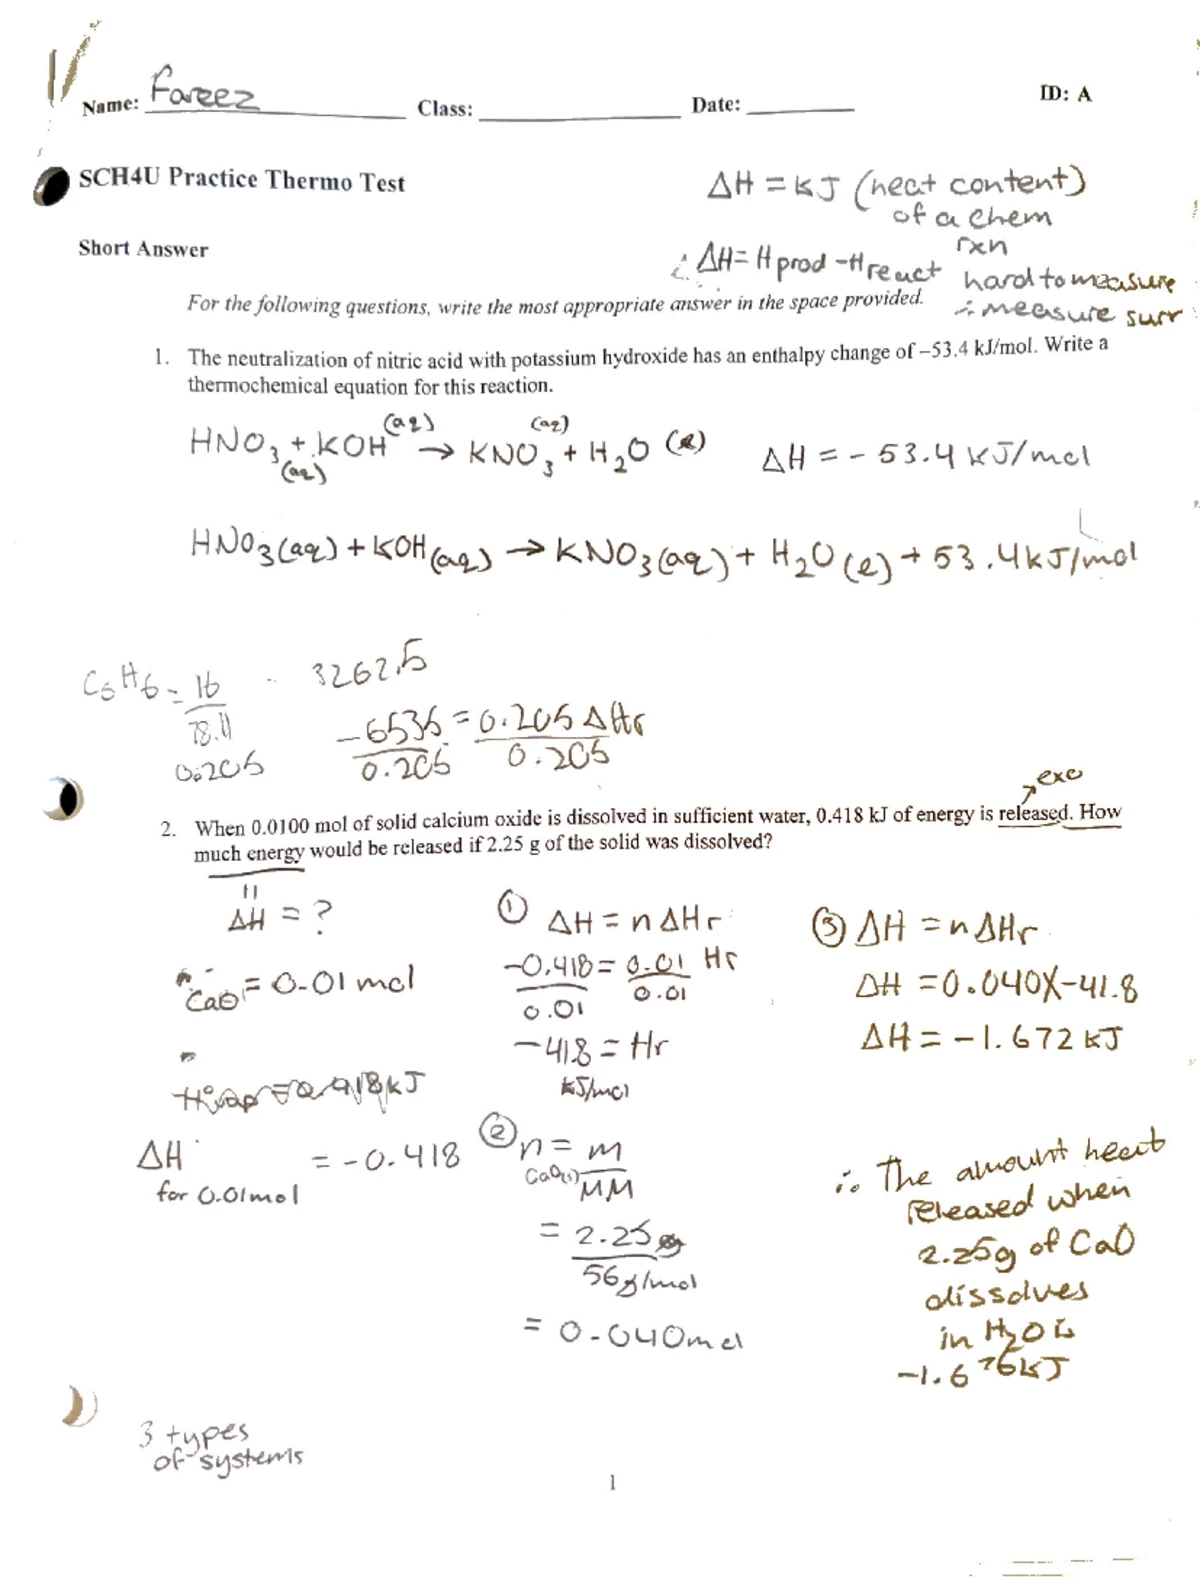 Name: Fareez Class: Date: ID: A
SCH4U Practice Thermo Test
ΔH = kJ (heat content)
of a chem
rxn
∴ ΔH = H prod - H react
hard to measure
∴ measure surr
Short Answer
For the following questions, write the most appropriate answer in the space provided.
1. The neutralization of nitric acid with potassium hydroxide has an enthalpy change of –53.4 kJ/mol. Write a
thermochemical equation for this reaction.
HNO3 (aq) + KOH (aq) → KNO3 (aq) + H2O (l) ΔH = - 53.4 kJ/mol
HNO3(aq) + KOH(aq) → KNO3(aq) + H2O(l) + 53.4 kJ/mol
C6H6 = 16
78.11
0.205
3262.5
-6535 = 0.205 ΔHr
0.205 0.205
exo
2. When 0.0100 mol of solid calcium oxide is dissolved in sufficient water, 0.418 kJ of energy is released. How
much energy would be released if 2.25 g of the solid was dissolved?
ΔH = ?
n CaO = 0.01 mol
ΔH = -0.418
for 0.01mol
① ΔH = nΔHr
-0.418 = 0.01 Hr
0.01 0.01
-418 = Hr
kJ/mol
② n = m
CaO(s) MM
= 2.25g
56g/mol
= 0.040mol
③ ΔH = nΔHr
ΔH = 0.040X-41.8
ΔH = -1.672 kJ
∴ The amount heat
released when
2.25g of CaO
dissolves
in H2O is
-1.676kJ
3 types
of systems
1